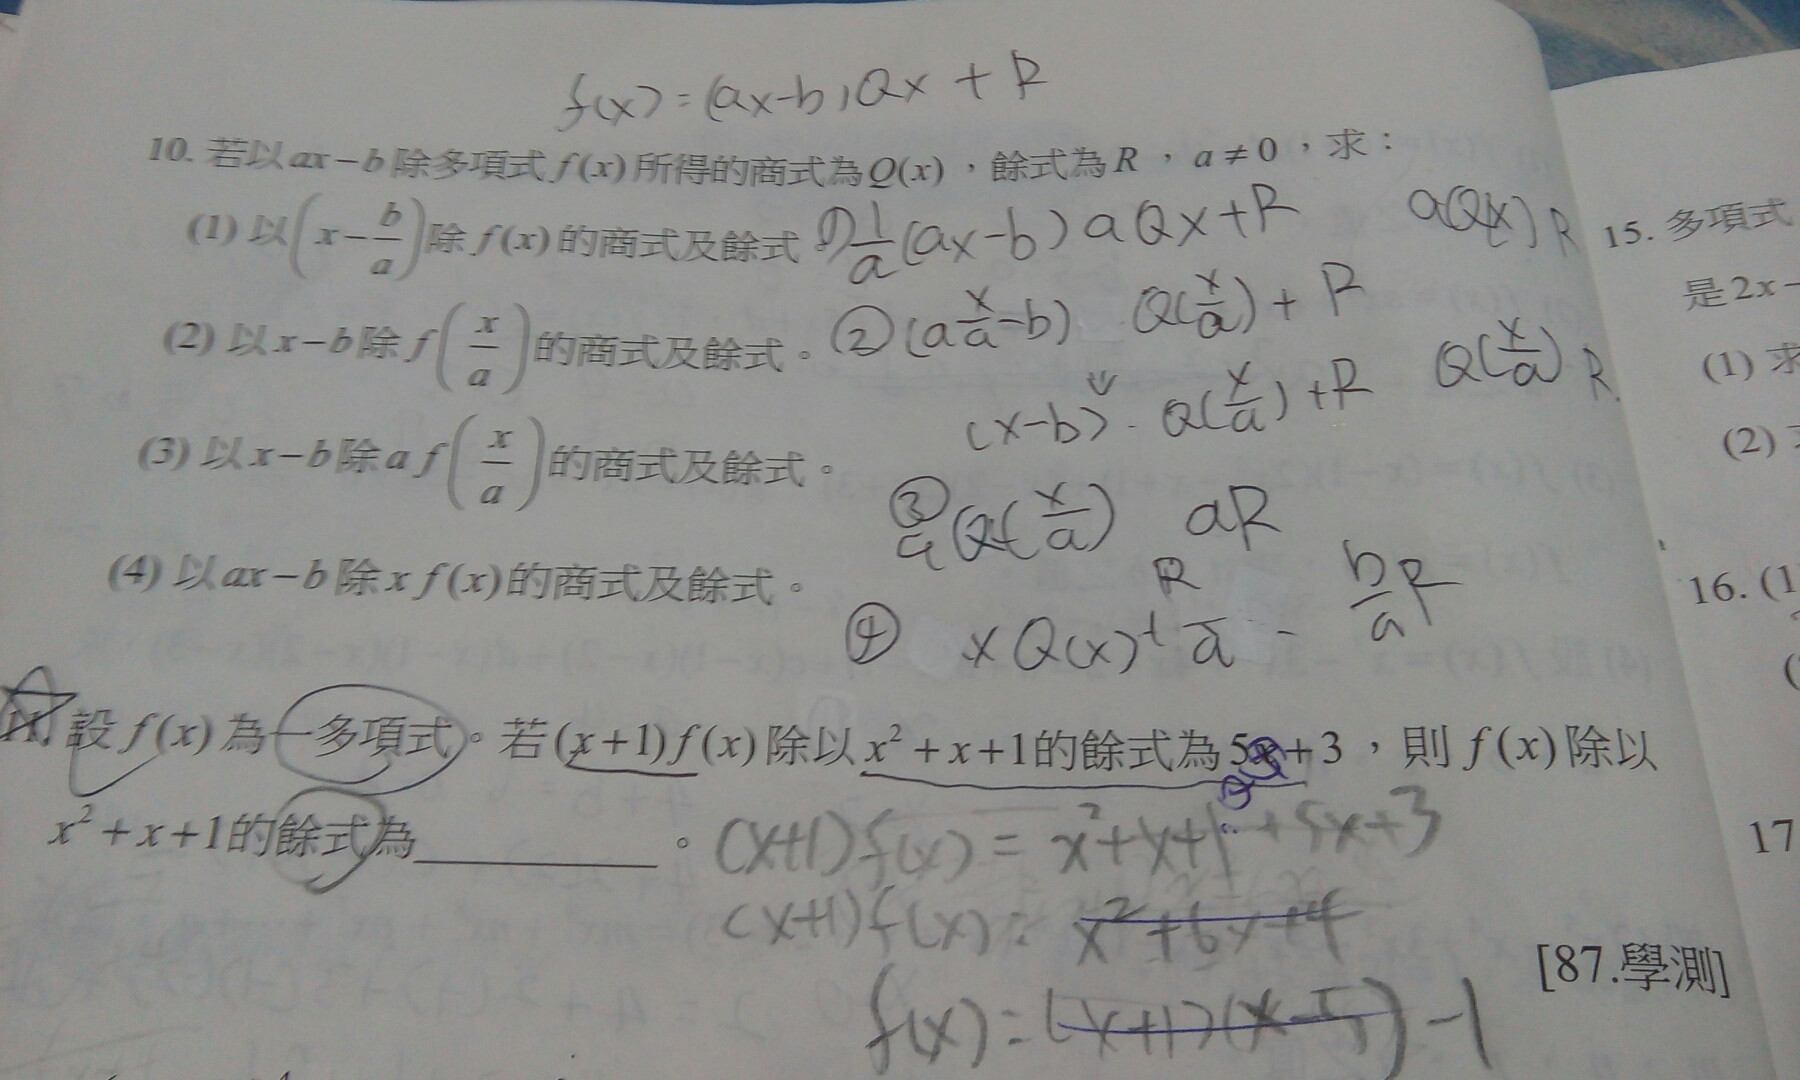 f(x)=(ax-b)Qx+R
10. 若以ax-b除多項式f(x)所得的商式為Q(x)，餘式為R，a≠0，求：
(1) 以(x-b/a)除f(x)的商式及餘式 (1) 1/a(ax-b)aQx+R a(Qx) R
(2) 以x-b除f(x/a)的商式及餘式。 ② (a x/a-b) Q(x/a)+R
(x-b)·Q(x/a)+R Q(x/a) R
(3) 以x-b除a f(x/a)的商式及餘式。 ③ aQ(x/a) aR
(4) 以ax-b除x f(x)的商式及餘式。 ④ xQ(x)+R/a - b/a R
設f(x)為一多項式。若(x+1)f(x)除以x²+x+1的餘式為5x+3，則f(x)除以
x²+x+1的餘式為________。
(x+1)f(x)=x²+x+1+5x+3
(x+1)f(x)=x²+6x+4
f(x)=(x+1)(x-5)-1
[87.學測]
15. 多項式
是2x-
(1) 求
(2)
16. (1
17